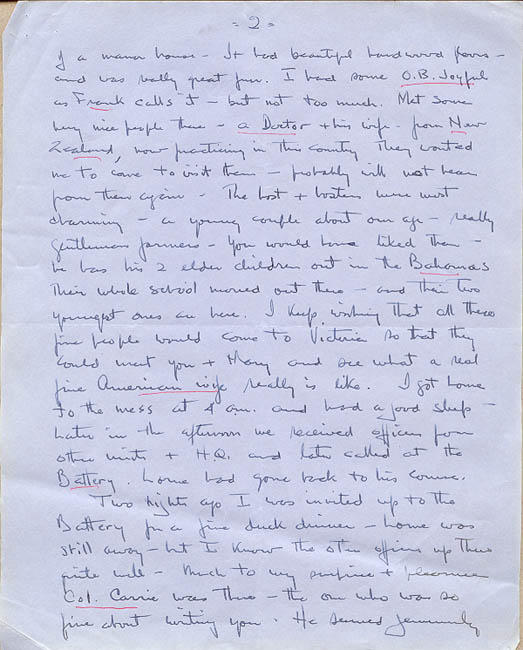 = 2 =
of a manor house - It had beautiful hardwood floors -
and was really great fun. I had some O.B. Joyful
as Frank calls it - but not too much. Met some
very nice people there - a Doctor + his wife - from New
Zealand, now practicing in this country They wanted
me to come to visit them - probably will not hear
from them again - The host + hostess were most
charming - a young couple about our age - really
gentleman farmers - You would have liked them -
he has his 2 elder children out in the Bahamas
Their whole school moved out there - and their two
youngest ones are here. I keep wishing that all these
fine people would come to Victoria so that they
could meet you + Mary and see what a real
fine American wife really is like. I got home
to the mess at 4 am. and had a good sleep -
Later in the afternoon we received officers from
other units + H.Q. and later called at the
Battery. had gone back to his course.
Two nights ago I was invited up to the
Battery for a fine duck dinner - was
still away - but I know the other officers up there
quite well - Much to my surprise +
Col. Carrie was there - the one who was so
fine about writing you. He seemed genuinely